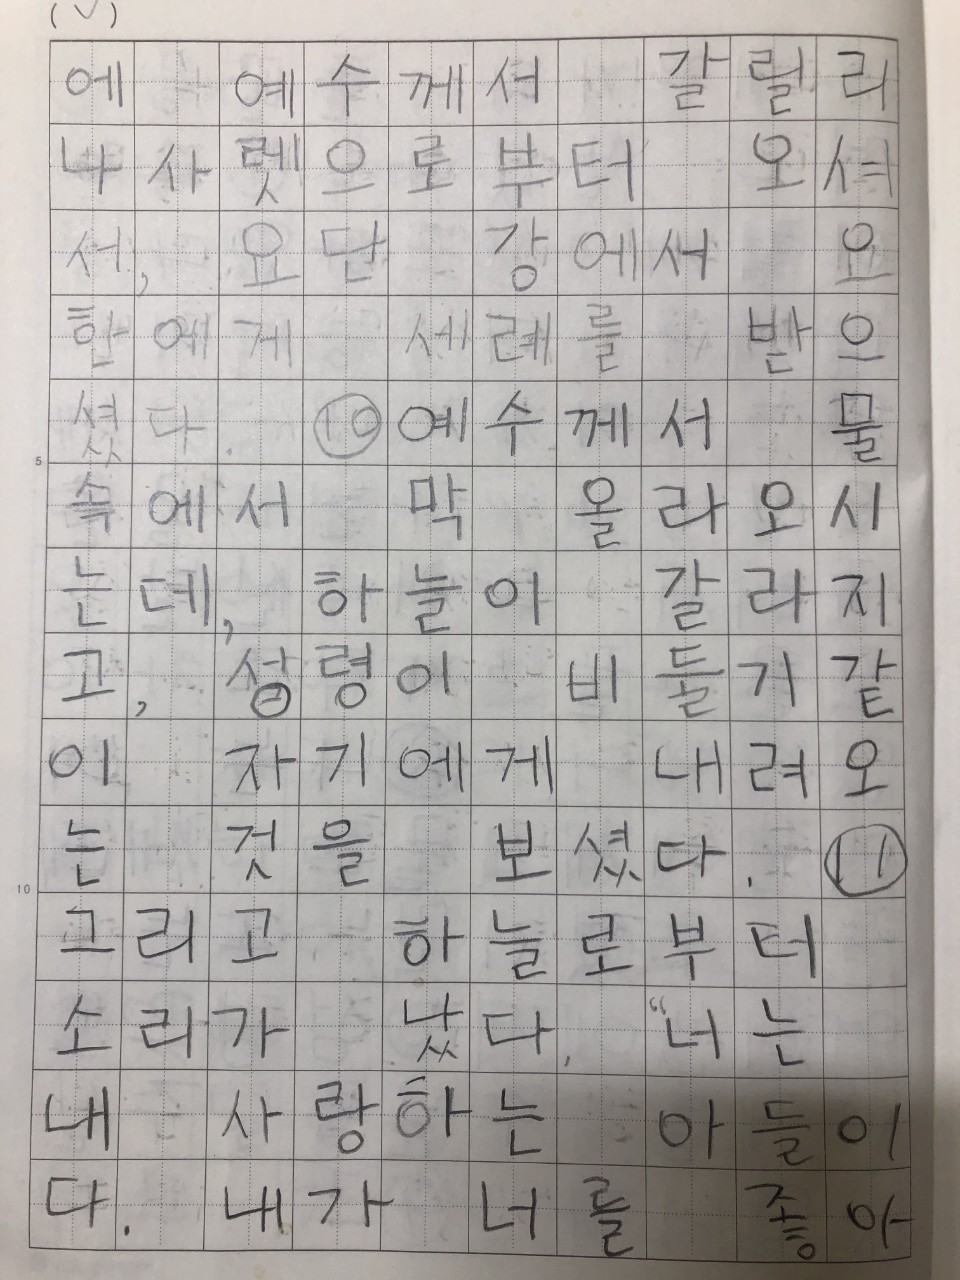 (✓)
에 예수께서 갈릴리
나사렛으로부터 오셔
서, 요단 강에서 요
한에게 세례를 받으
셨다. ⑩예수께서 물
5
속에서 막 올라오시
는데, 하늘이 갈라지
고, 성령이 비둘기 같
이 자기에게 내려오
는 것을 보셨다. ⑪
10
그리고 하늘로부터
소리가 났다, “너는
내 사랑하는 아들이
다. 내가 너를 좋아